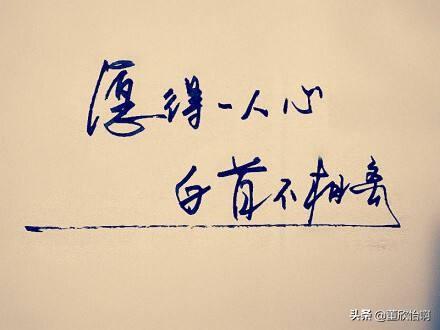 愿得一人心
白首不相离
头条 @董欣怡啊